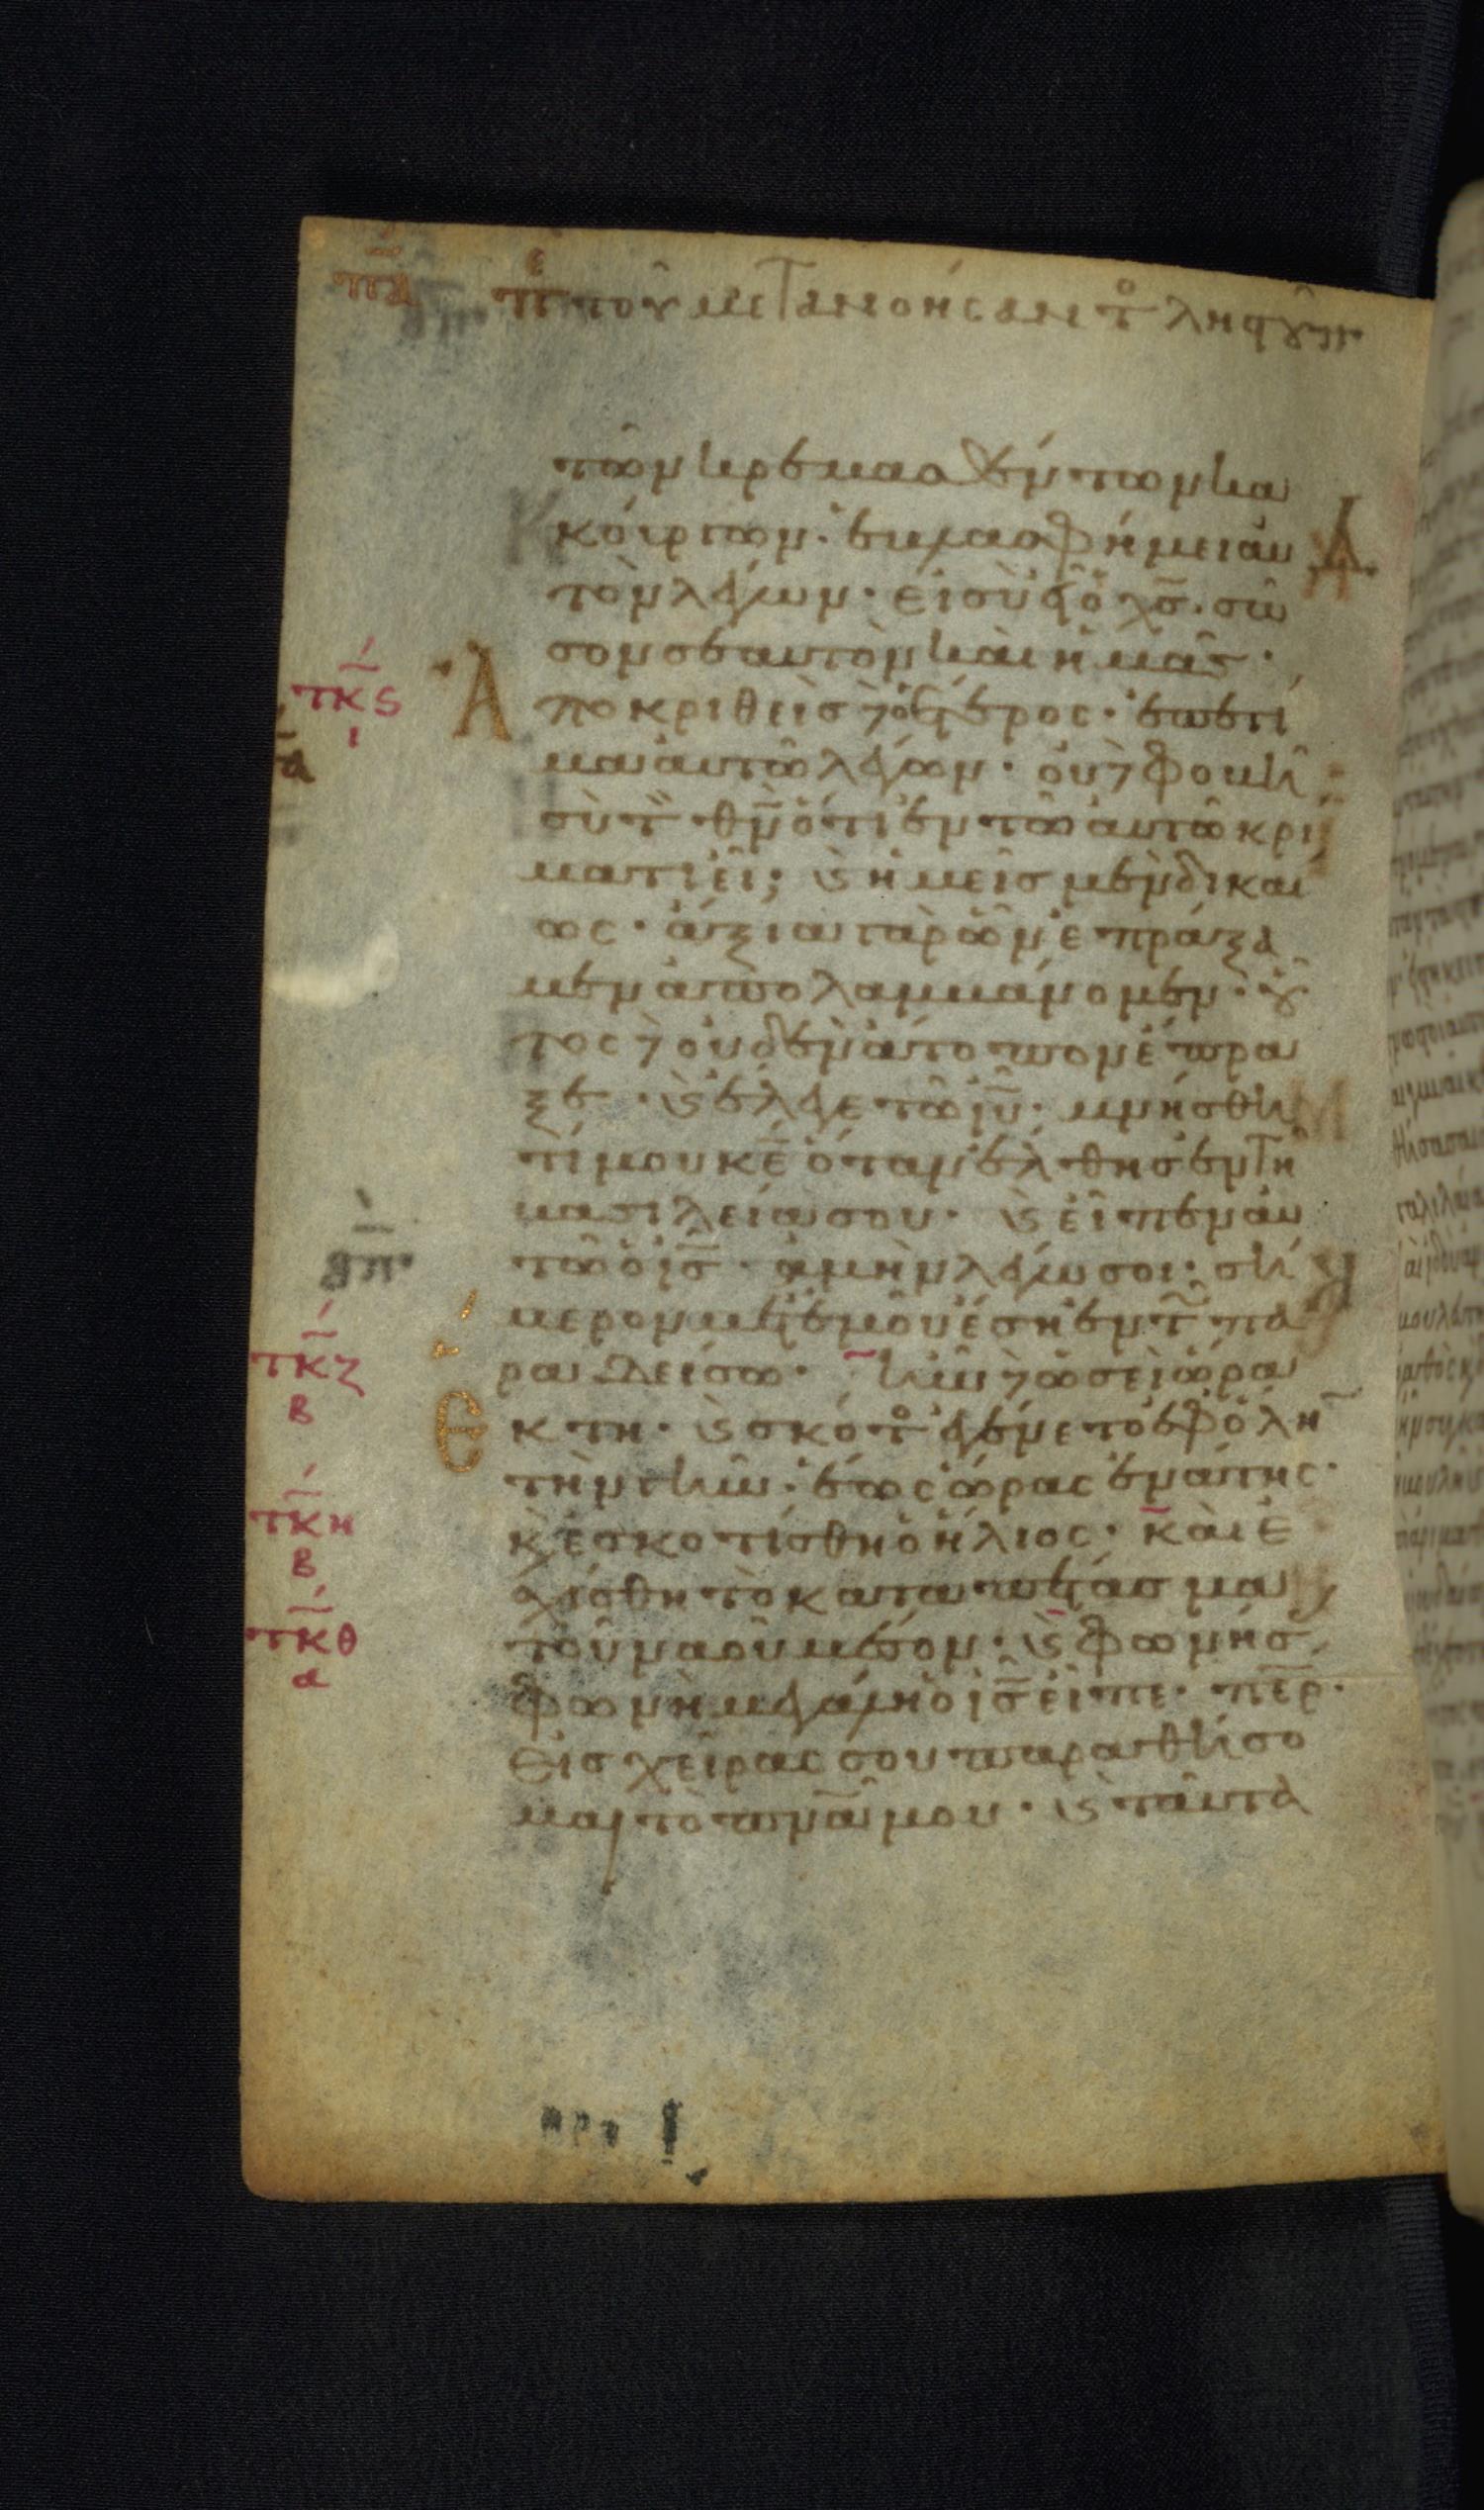 πα πε τοῦ μετανοήσαντο ληστοῦ
των κρεμασθέντων κα
κούργων· ἐβλασφήμει αὐ
τὸν λέγων· εἰ σὺ εἶ ὁ χς· σῶ
σον σεαυτὸν καὶ ἡμᾶς·
τκϛ
ι
Ἀ ποκριθεὶς δὲ ὁ ἕτερος· ἐπετί
μα αὐτῶ λέγων· οὐδὲ φοβῆ
σὺ τὸν θν ὅτι ἐν τῶ αὐτῶ κρί
ματι εἶ; καὶ ἡμεῖς μὲν δικαί
ως· ἄξια γὰρ ὧν ἐπράξα
μεν ἀπολαμβάνομεν· οὗ
τος δὲ οὐδὲν ἄτοπον ἔπρα
ξε· καὶ ἔλεγε τῶ ιυ· μνήσθη
τί μου κε ὅταν ἔλθης ἐν τῆ
βασιλεία σου· καὶ εἶπεν αὐ
τῶ ὁ ις· ἀμὴν λέγω σοι· σή
μερον μετ ἐμοῦ ἔση ἐν τῶ πα
τκζ
β
ραδείσω· ἦν δὲ ὡσεὶ ὥρα
Ἕ κτη· καὶ σκότος ἐγένετο ἐφ ὅλην
τὴν γῆν· ἕως ὥρας ἐννάτης·
τκη
β
κ ἐσκοτίσθη ὁ ἥλιος· καὶ ἐ
σχίσθη τὸ καταπέτασμα
τκθ
α
τοῦ ναοῦ μέσον· καὶ φωνήσας
φωνῆ μεγάλη ὁ ις εἶπε· περ·
εἰς χεῖρας σου παραθήσο
μαι τὸ πνα μου· καὶ ταῦτα